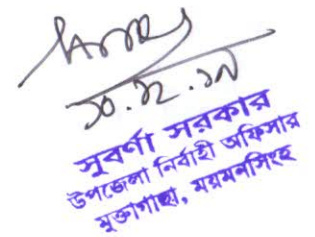 ১০.১২.১৯
সুবর্ণা সরকার
উপজেলা নির্বাহী অফিসার
মুক্তাগাছা, ময়মনসিংহ